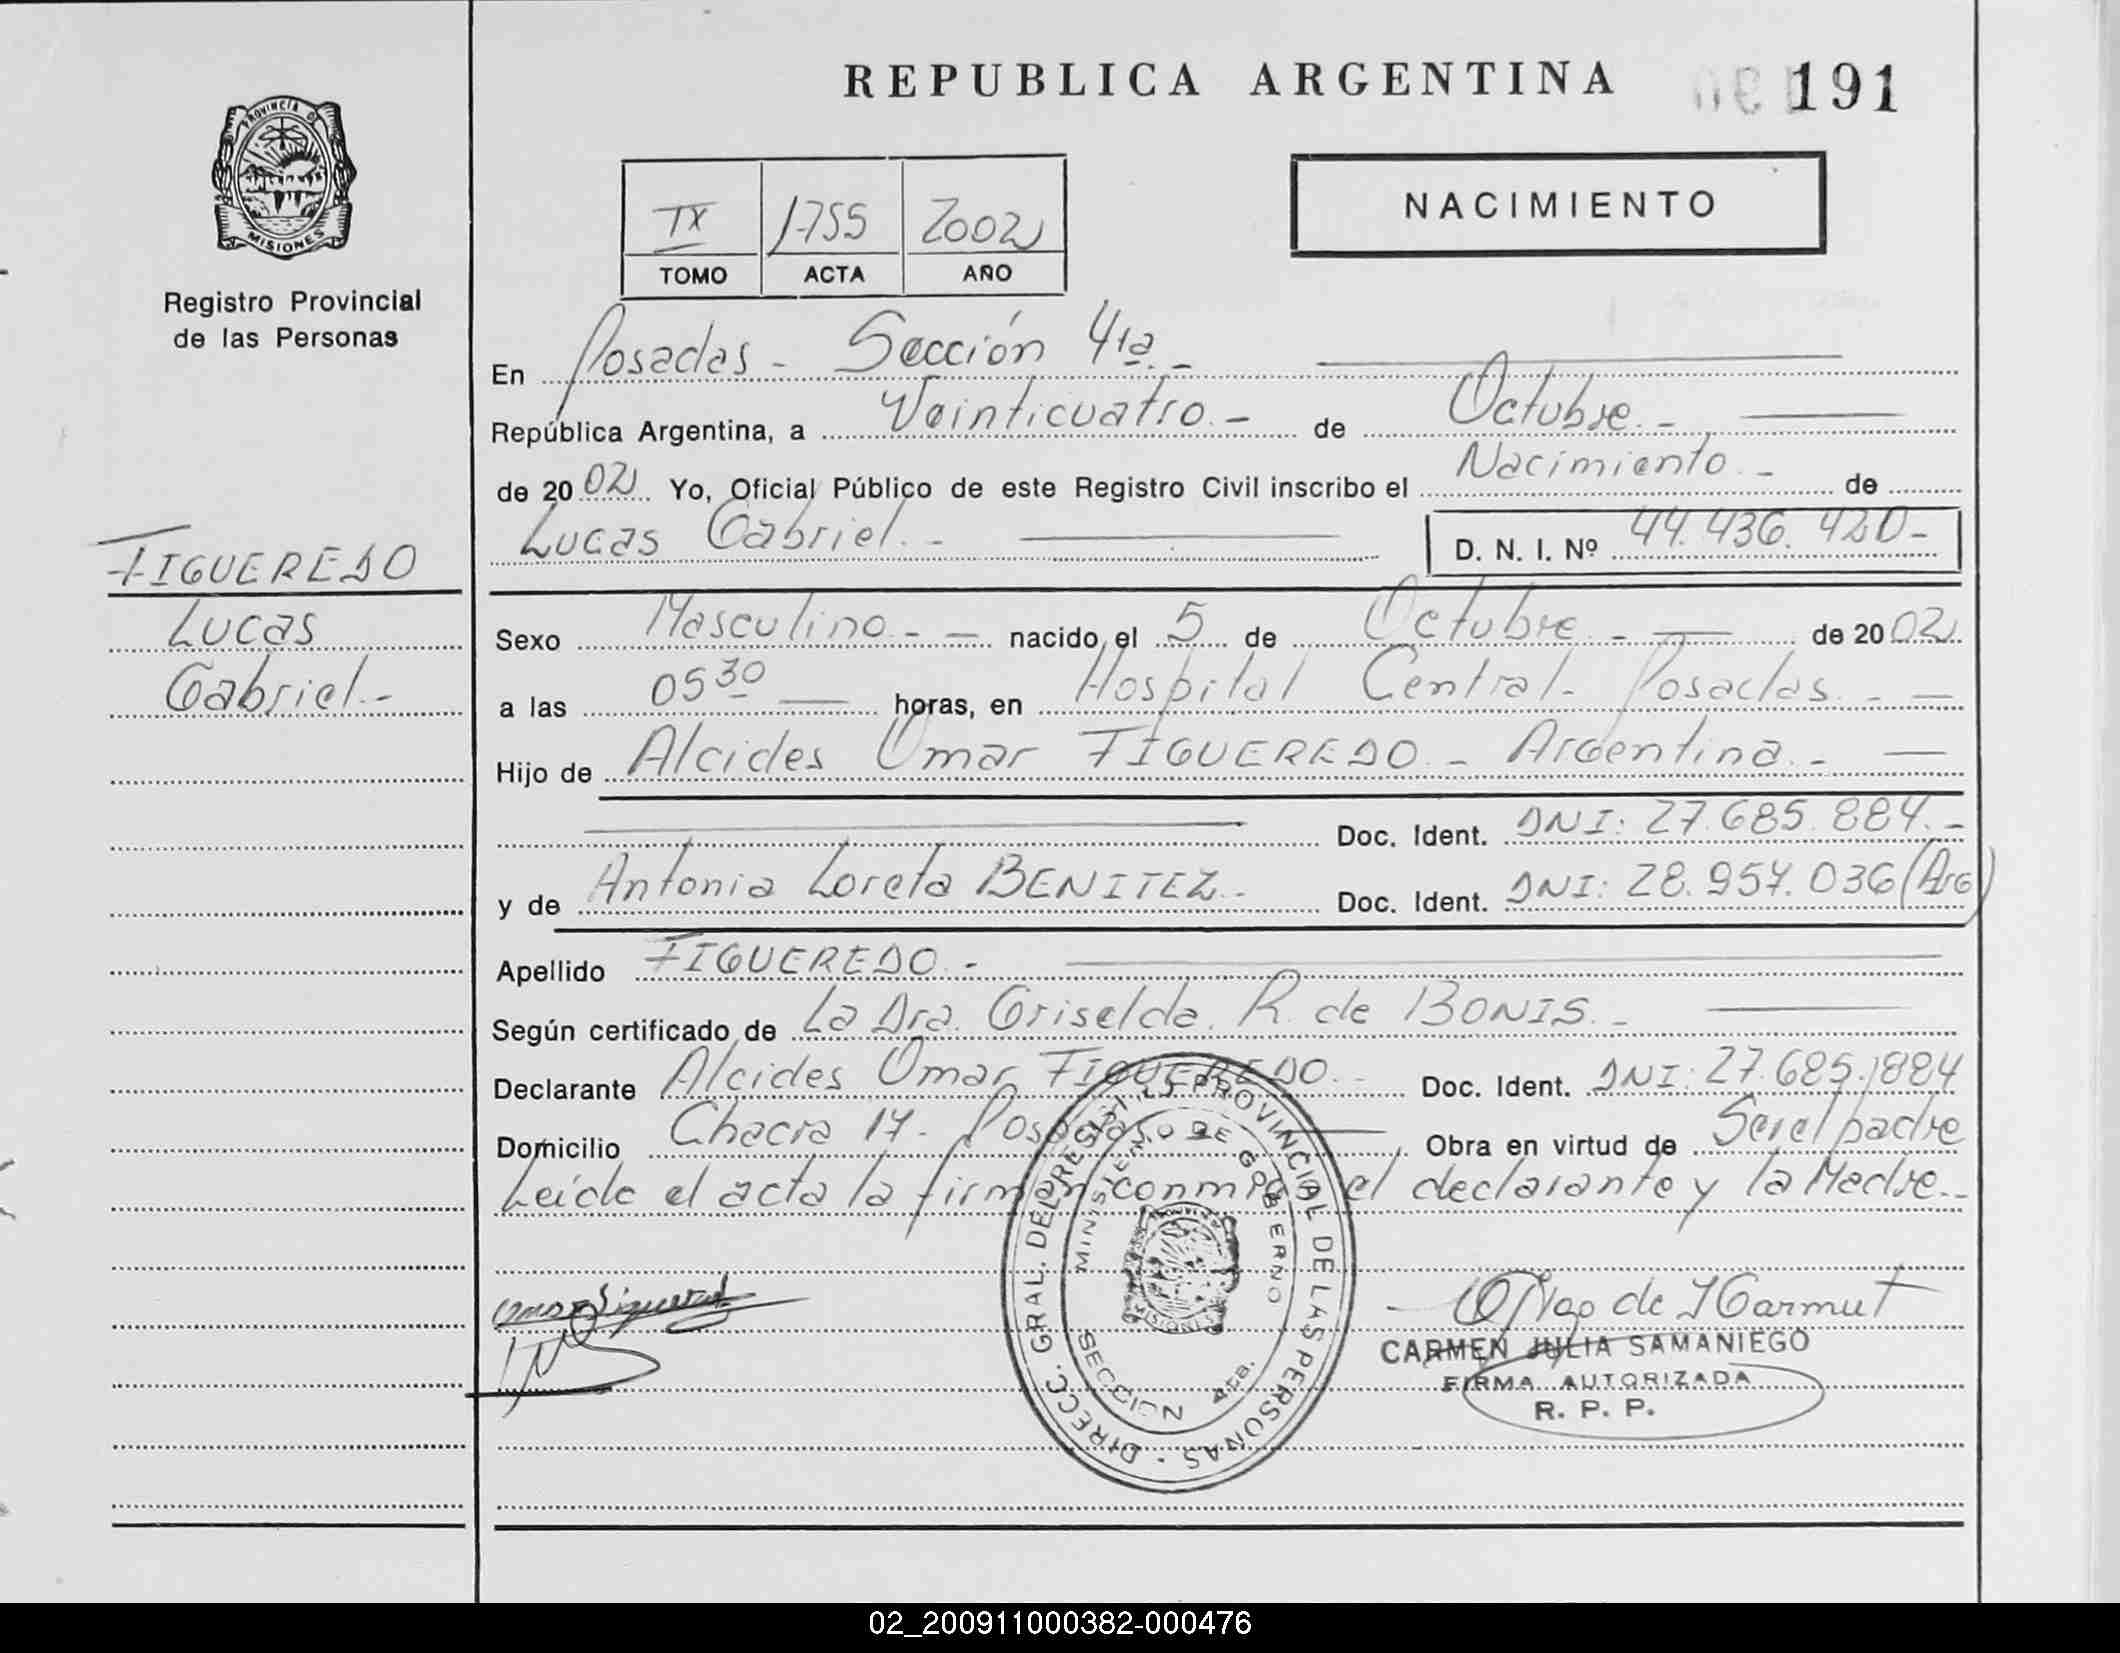 REPUBLICA ARGENTINA 191
PROVINCIA DE MISIONES
Registro Provincial
de las Personas
NACIMIENTO
IX 1755 2002
TOMO ACTA AÑO
En Posadas - Sección 4ta. -
República Argentina, a Veinticuatro. - de Octubre. -
de 2002 Yo, Oficial Público de este Registro Civil inscribo el Nacimiento. - de
Lucas Gabriel. - D. N. I. Nº 44.436.420-
FIGUEREDO
Lucas
Gabriel. -
Sexo Masculino. - nacido el 5 de Octubre. - de 2002
a las 05 30 horas, en Hospital Central - Posadas. -
Hijo de Alcides Omar FIGUEREDO. - Argentina. -
Doc. Ident. DNI: 27.685.884. -
y de Antonia Loreta BENITEZ. - Doc. Ident. DNI: 28.957.036 (Arg)
Apellido FIGUEREDO. -
Según certificado de La Dra. Griselda R. de BONIS. -
Declarante Alcides Omar FIGUEREDO. - Doc. Ident. DNI: 27.685.884
Domicilio Chacra 17 - Posadas. Obra en virtud de Ser el padre
Leída el acta la firman conmigo el declarante y la Madre. -
DIRECC. GRAL. DEL REGISTRO PROVINCIAL DE LAS PERSONAS
MINISTERIO DE GOBIERNO
SECCION 4ta.
CARMEN JULIA SAMANIEGO
FIRMA AUTORIZADA
R. P. P.
02_200911000382-000476